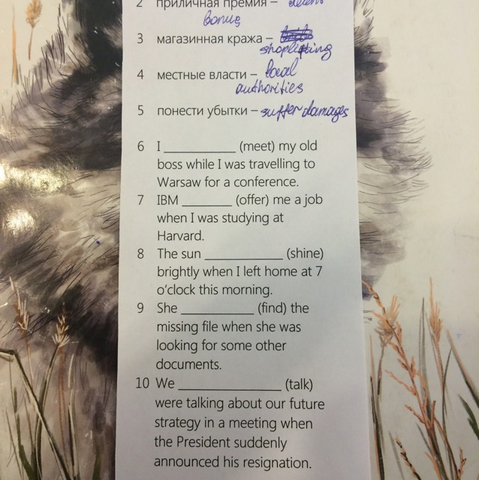 2 приличная премия – decent
bonus
3 магазинная кража –
shoplifting
4 местные власти – local
authorities
5 понести убытки – suffer damages
6 I ____________ (meet) my old
boss while I was travelling to
Warsaw for a conference.
7 IBM ________ (offer) me a job
when I was studying at
Harvard.
8 The sun _____________ (shine)
brightly when I left home at 7
o'clock this morning.
9 She ____________ (find) the
missing file when she was
looking for some other
documents.
10 We _________________ (talk)
were talking about our future
strategy in a meeting when
the President suddenly
announced his resignation.